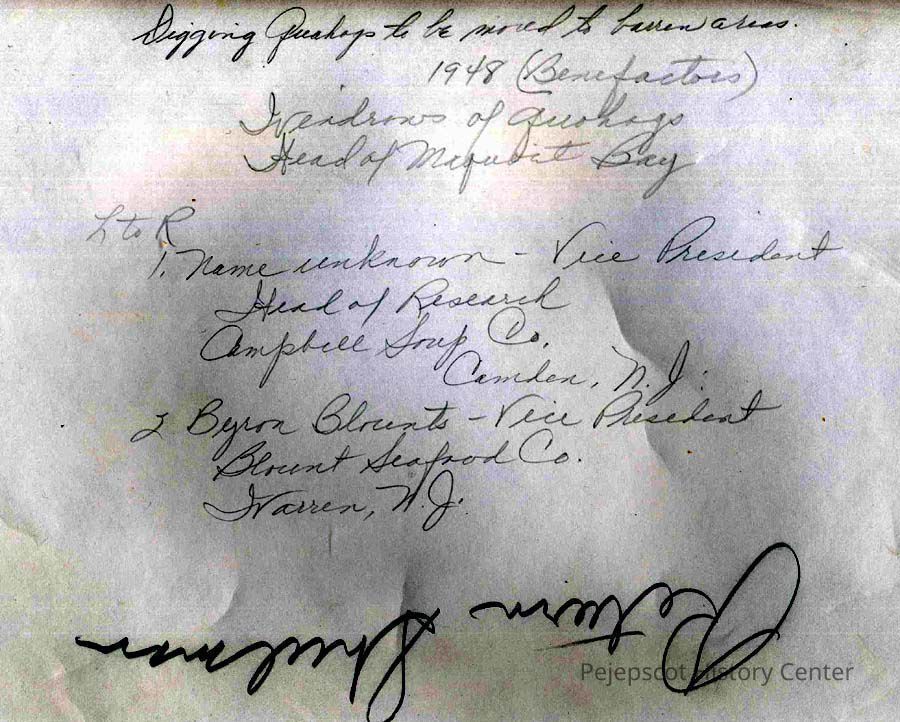 Digging Quahogs to be moved to barren areas.
1948 (Benefactors)
Windrows of Quohogs
Head of Maquoit Bay
L to R
1. Name unknown - Vice President
Head of Research
Campbell Soup Co.
Camden, N.J.
2 Byron Blounts - Vice President
Blount Seafood Co.
Warren, N.J.
Return
Pejepscot History Center